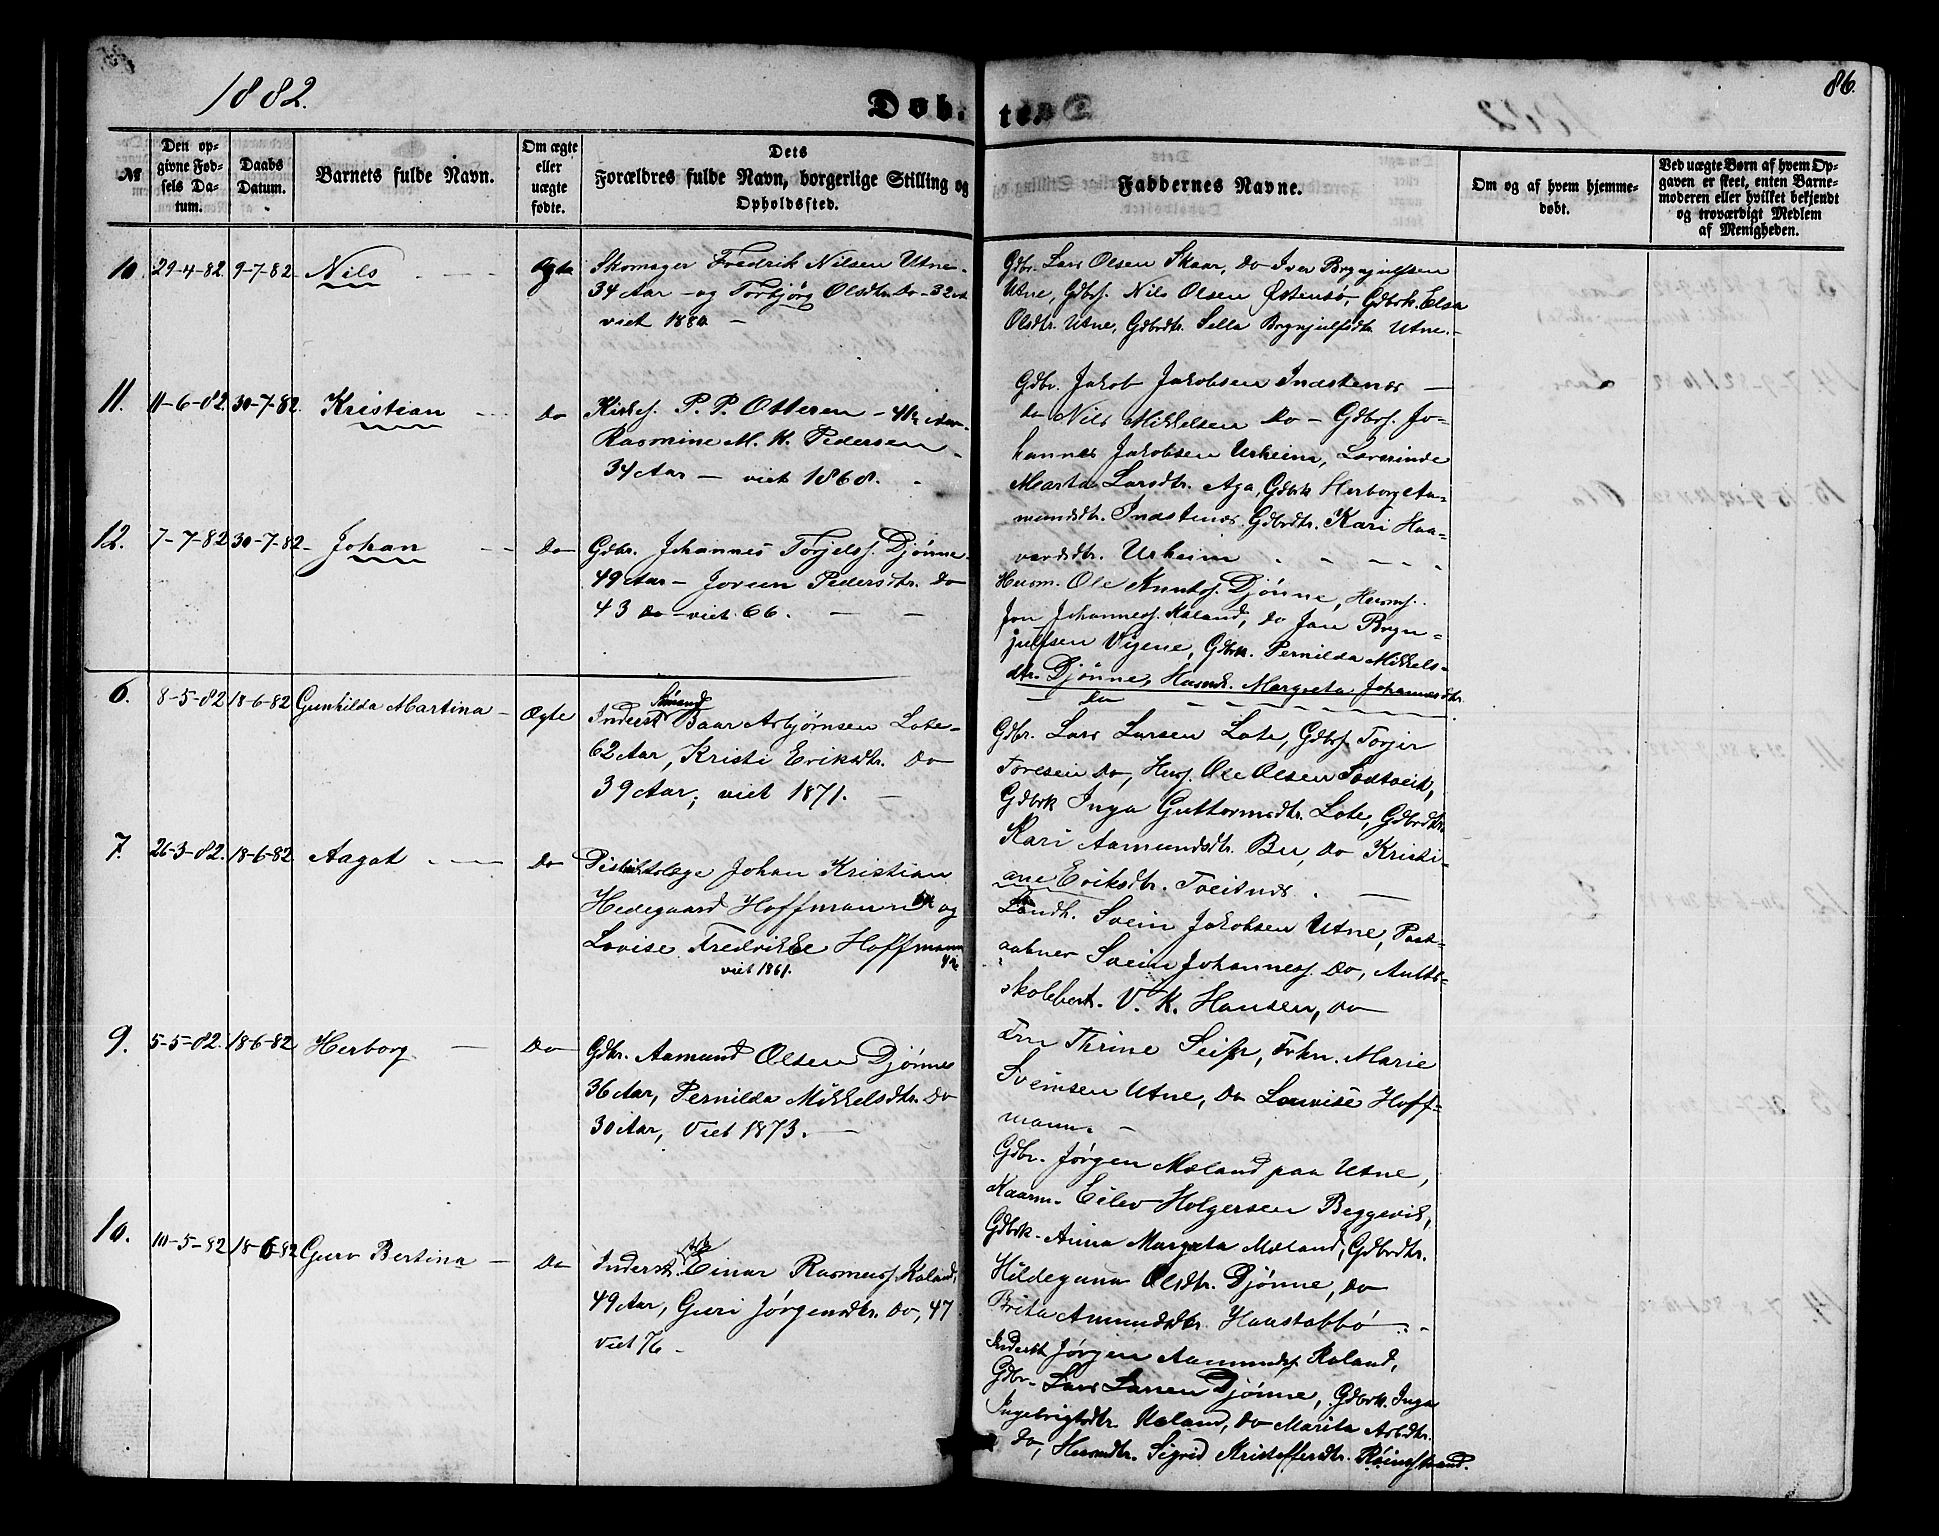 1882.
Døb-
te.
86.
№
Den op-
givne Fød-
sels Da-
tum.
Daabs
Datum.
Barnets fulde Navn.
Om ægte
eller
uægte
fødte.
Dets
Forældres fulde Navn, borgerlige Stilling og
Opholdssted.
Faddernes Navne.
Om og af hvem hjemme-
døbt.
Ved uægte Børn af hvem Op-
gaven er skeet, enten Barne-
moderen eller hvilket bekjendt
og troværdigt Medlem
af Menigheden.
10. 29-4-82 9-7-82 Nils Ægte
Skomager Fredrik Nilsen Utne
34 Aar - og Torbjørg Olsdtr. Do - 32
viet 1880 -
Gdbr. Lars Olsen Skaar, Do Iver Brynjulfsen
Utne, Gdbrs. Nils Olsen Østensø, Gdbrk. Elsa
Olsdtr. Utne, Gdbrdtr. Sella Brynjulfsdtr Utne.-
11. 11-6-82 30-7-82. Kristian Do
Kirkes. P. P. Otteren - 41
Rasmine M. K. Pedersen
34 Aar - viet 1868.
Gdbr. Jakob Jakobsen Indstenæs -
Do Nils Mikkelsen Do - Gdbrs. Jo-
hannes Jakobsen Urheim, Lærerinde
Marta Larsdtr. Aga, Gdbrk Herborg Aa-
mundsdtr. Indstenæs. Gdbrdtr. Kari Haa-
vardsdtr. Urheim
12. 7-7-82 30-7-82 Johan Do
Gdbr. Johannes Torjels. Djønne
49 Aar - Joreen Pedersdtr. Do
43 Do - viet 66.
Husm. Ole Knuts. Djønne, Husms.
Jon Johanness. Røland, Do Jon Bryn-
julfsen Vigene, Gdbrk. Pernilda Mikkels-
dtr. Djønne, Husmk. Margreta Johannesdtr.
Do
6. 8-5-82 18-6-82 Gunhilda Martina - Ægte
Inderst Baar Asbjørnsen Lote
62 Aar, Kristi Eriksdtr. Do
39 Aar; viet 1871.
Gdbr. Lars Larsen Lote, Gdbrs Torjer
Toresen Do, Huss. Ole Olsen Sodtveit,
Gdbrk Inga Guttormsdtr. Lote, Gdbrdtr.
Kari Aamundsdtr. Bu, Do Kristi-
ane Eriksdtr. Tveitnes.
7. 26-3-82. 18-6-82 Aagot Do
Distriktslæge Johan Kristian
Hedegaard Hoffmann og
Lovise Fredrikke Hoffmann
viet 1861.
Landh. Svein Jakobsen Utne, Post-
aabner Svein Johanness. Do, Amts-
skolebest. V. K. Hansen, Do
Fru Thrine Seip, Frkn. Marie
Sveinsen Utne, Do Louvise Hoff-
mann. -
9. 5-5-82. 18-6-82 Herborg Do
Gdbr. Aamund Olsen Djønne
36 Aar, Pernilda Mikkelsdtr. Do
30 Aar, Viet 1873. -
Gdbr. Jørgen Mæland paa Utne,
Kaarm. Eilev Holgersen Beggevik,
Gdbrk. Anna Margreta Mæland, Gdbrdtr.
Hildegunn Olsdtr. Djønne, Do
Brita Amundsdtr. Haastabbø.-
10. 10-5-82 18-6-82 Guro Bertina - Do
Inderst. Einar Rasmuss. Røland,
49 Aar, Guri Jørgensdtr. Do, 47
viet 76 -
Inderst Jørgen Aamunds. Røland,
Gdbr. Lars Larsen Djønne, Gdbrk. Inga
Ingebrigtsdtr. Mæland, Do Marita Arbdtr.
Do, Husmdtr. Sigrid Kristoffersdtr.